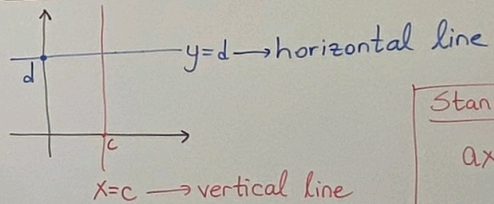 y=d→horizontal line
d
c
x=c → vertical line
Stan
ax